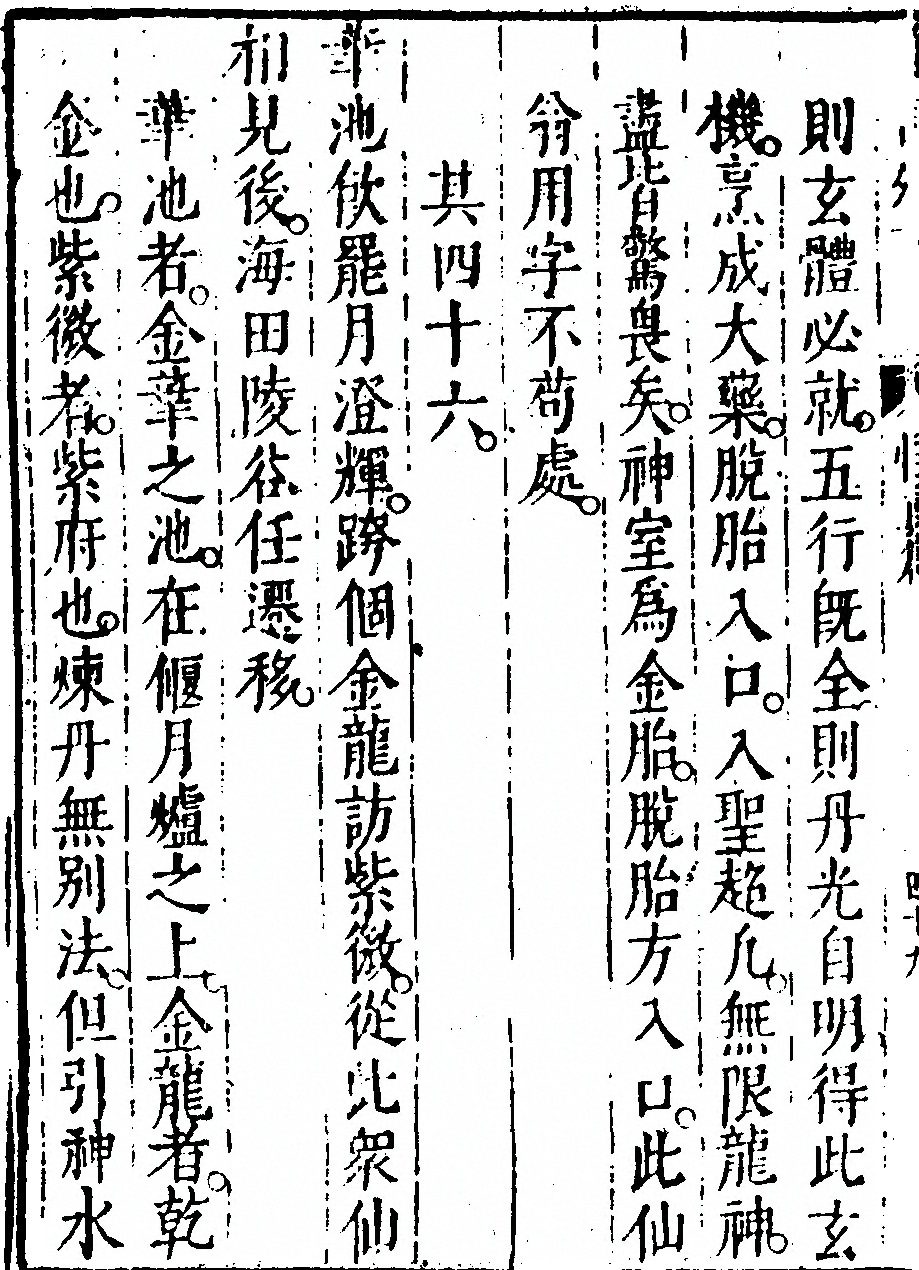 則玄體必就。五行旣全則丹光自明得此玄
機。烹成大藥。脫胎入口。入聖超凡。無限龍神。
盡皆驚畏矣。神室爲金胎。脫胎方入口。此仙
翁用字不苟處。
其四十六。
華池飲罷月澄輝。跨個金龍訪紫微。從此衆仙
相見後。海田陵谷任遷移。
華池者。金華之池。在偃月爐之上。金龍者。乾
金也。紫微者。紫府也。煉丹無別法。但引神水
四十九